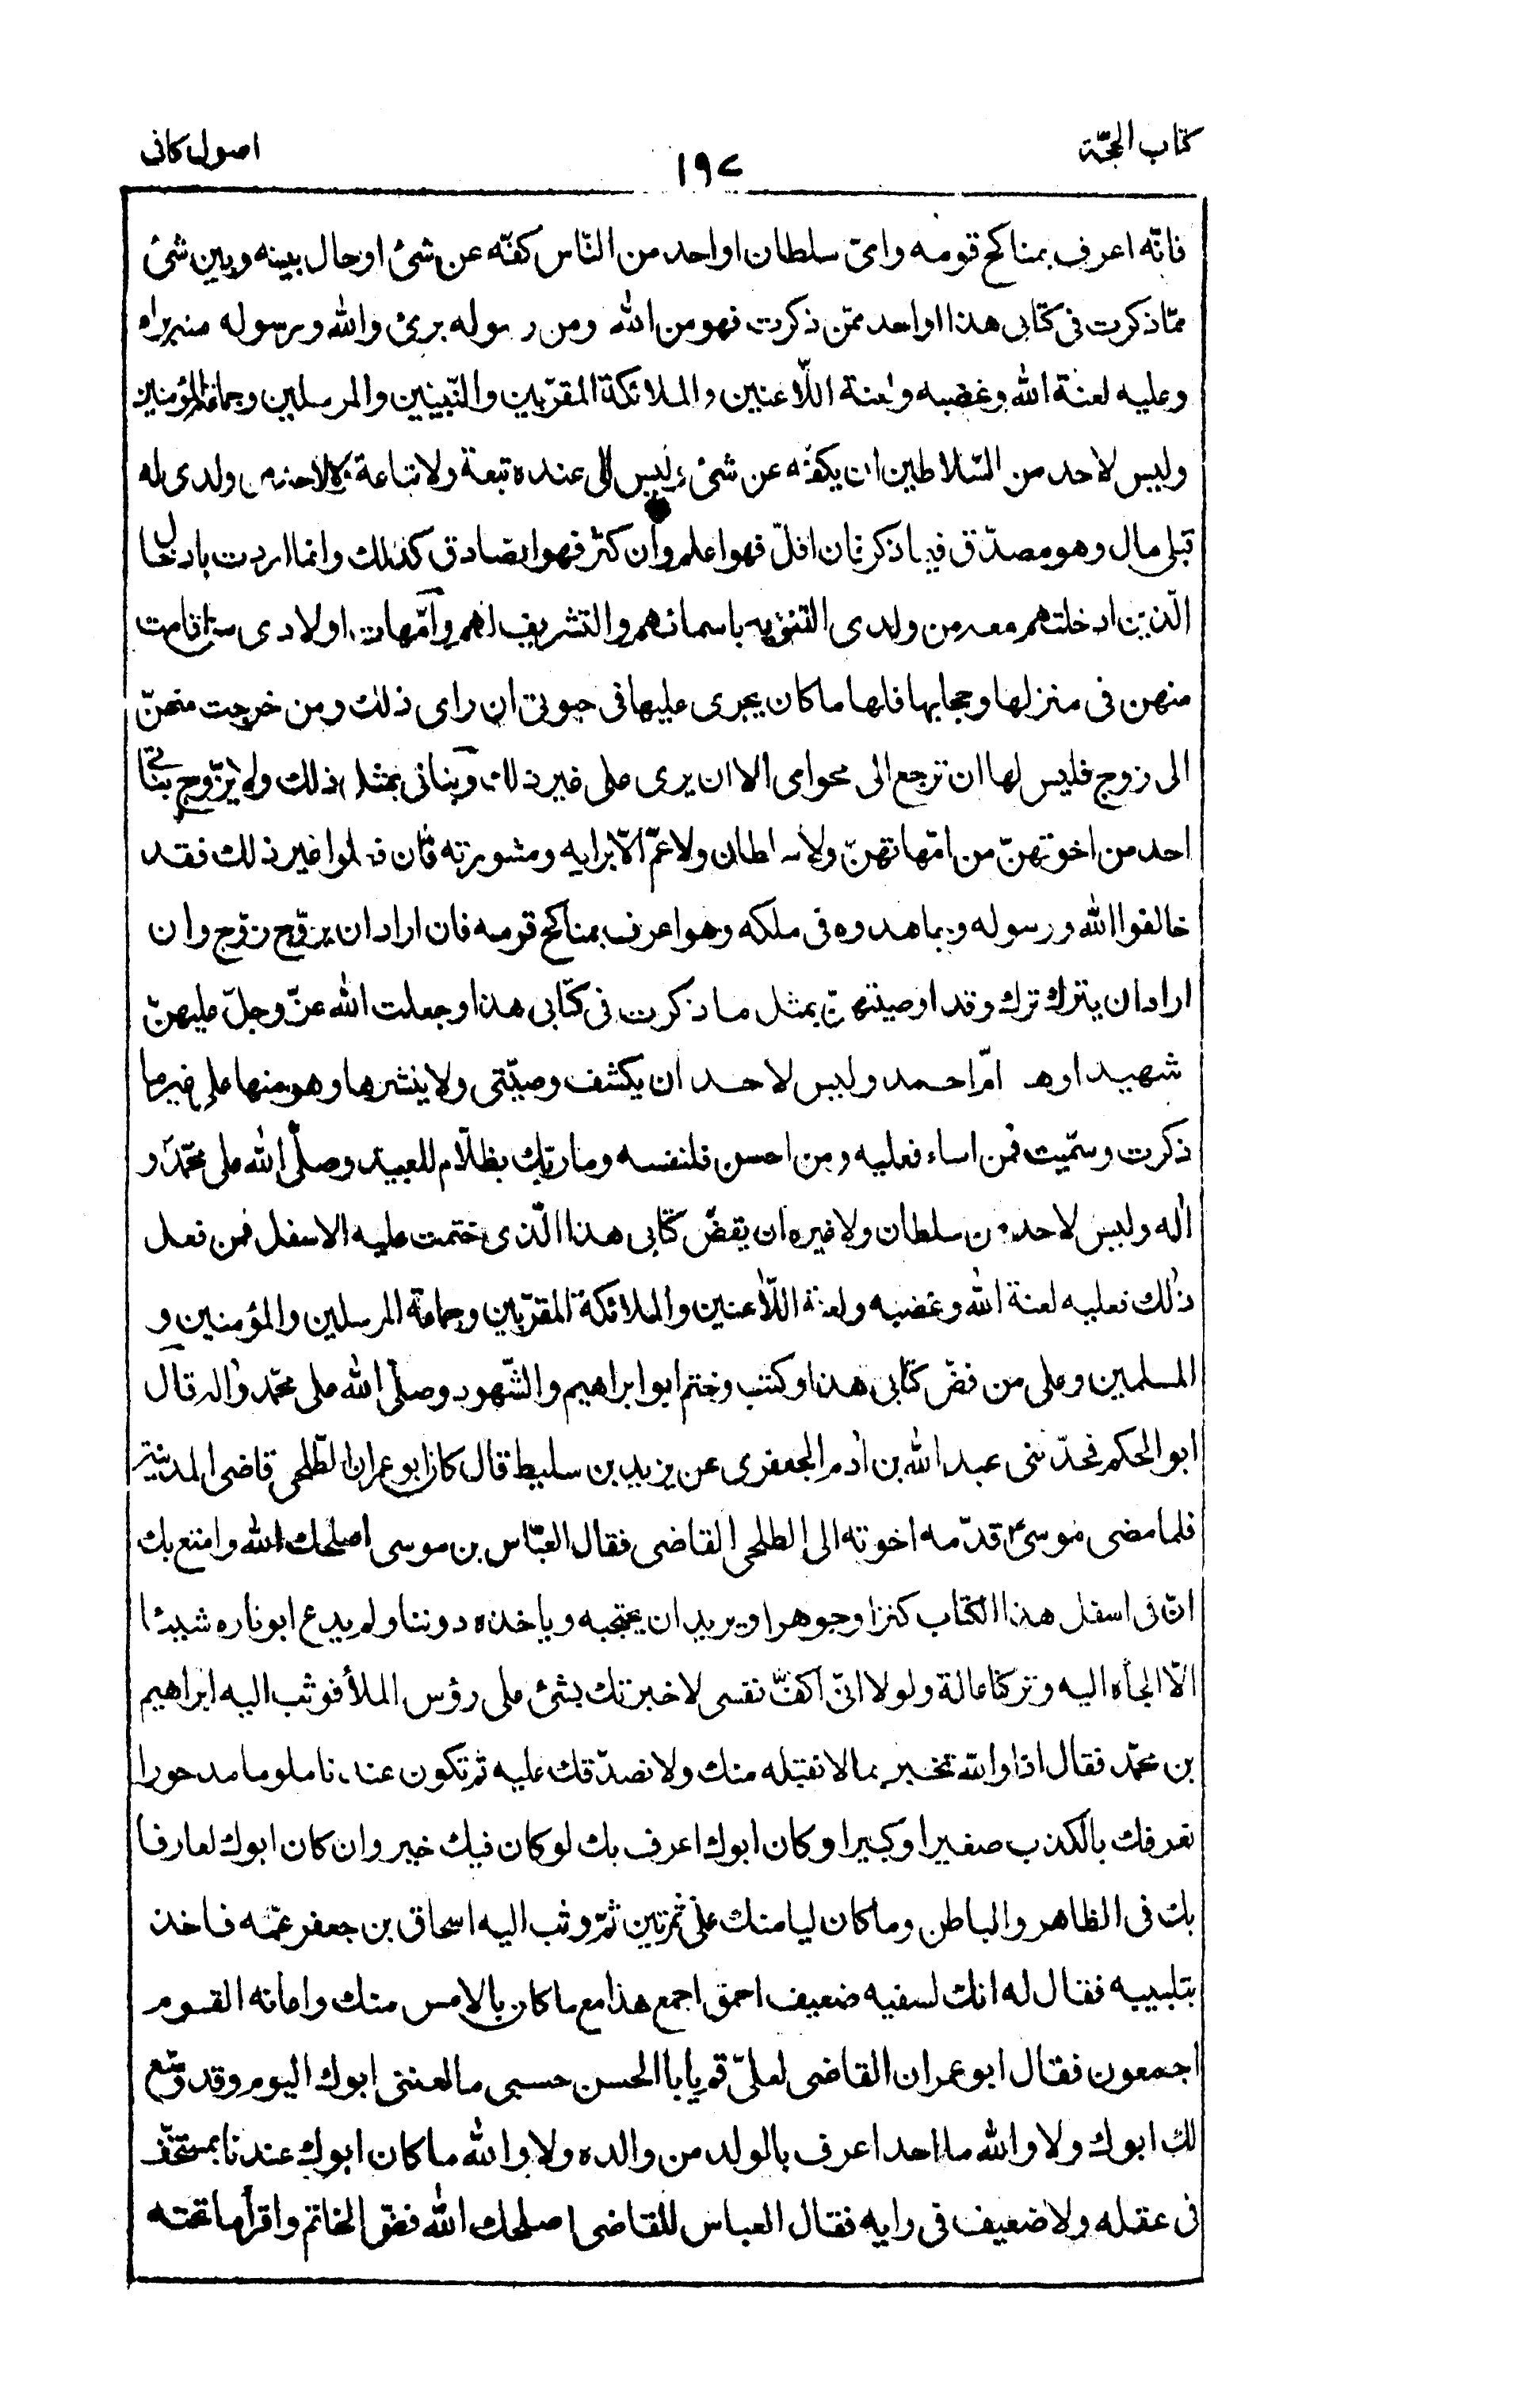 كتاب الحجّة
١٩٢
اصول كافى
فانّه اعرف بمناكح قومه واىّ سلطان او احد من النّاس كفّه عن شئ او حال بينه وبين شئ
ممّا ذكرت فى كتابى هذا او احد ممّن ذكرت فهو من الله ومن رسوله برئ والله ورسوله منه براء
وعليه لعنة الله وغضبه ولعنة اللّاعنين والملائكة المقرّبين والنّبيّين والمرسلين وجماعة المؤمنين
وليس لاحد من السّلاطين ان يكفّه عن شئ وليس لى عنده تبعة ولا تباعة ولا لاحد من ولدى له
قبلى مال وهو مصدّق فيما ذكر فان اقلّ فهو اعلم وان كثر فهو الصادق كذلك وانما اردت بادخال
الّذين ادخلتهم معه من ولدى التنويه باسمائهم والتشريف لهم وامّهات اولادى من اقامت
منهن فى منزلها وحجابها فلها ما كان يجرى عليها فى حيوتى ان راى ذلك ومن خرجت منهنّ
الى زوج فليس لها ان ترجع الى محواى الا ان يرى على غير ذلك وبناتى بمثل ذلك ولا يزّوج بناتى
احد من اخوتهنّ من امّهاتهنّ ولا سلطان ولا عمّ الّا برايه ومشورته فان فعلوا غير ذلك فقد
خالفوا الله ورسوله وجاهدوه فى ملكه وهو اعرف بمناكح قومه فان اراد ان يزوّج زوّج وان
اراد ان يترك ترك وقد اوصيتهنّ بمثل ما ذكرت فى كتابى هذا وجعلت الله عزّ وجلّ عليهنّ
شهيدا وهـ امّ احمد وليس لاحد ان يكشف وصيّتى ولا ينشرها وهو منها على غير ما
ذكرت وسمّيت فمن اساء فعليه ومن احسن فلنفسه وما ربّك بظلّام للعبيد وصلّى الله على محمّد و
اله وليس لاحد من سلطان ولا غيره ان يفضّ كتابى هذا الّذى ختمت عليه الاسفل فمن فعل
ذلك فعليه لعنة الله وغضبه ولعنة اللّاعنين والملائكة المقرّبين وجماعة المرسلين والمؤمنين و
المسلمين وعلى من فضّ كتابى هذا وكتب وختم ابو ابراهيم والشّهود وصلّى الله على محمّد واله قال
ابو الحكم فحدّثنى عبد الله بن آدم الجعفرى عن يزيد بن سليط قال كان ابو عمران الطّلحى قاضى المدينة
فلما مضى موسىٰ قدّمه اخوته الى الطلحى القاضى فقال العبّاس بن موسى اصلحك الله وامتع بك
انّ فى اسفل هذا الكتاب كنزا وجوهرا ويريد ان يحتجبه وياخذه دوننا ولم يدع ابونا ره شيئا
الّا الجأه اليه وتركنا عالة ولولا انّى اكفّ نفسى لاخبرتك بشئ على رؤس الملأ فوثب اليه ابراهيم
بن محمّد فقال اذا والله تخبر بما لا نقبله منك ولا نصدّقك عليه ثم تكون عندنا ملوما مدحورا
نعرفك بالكذب صغيرا وكبيرا وكان ابوك اعرف بك لو كان فيك خير وان كان ابوك لعارفا
بك فى الظاهر والباطن وما كان ليامنك على تمرتين ثمّ وثب اليه اسحاق بن جعفر عمّه فاخذ
بتلبيبه فقال له انك لسفيه ضعيف احمق اجمع هذا مع ما كان بالامس منك واعانه القوم
اجمعون فقال ابو عمران القاضى لعلىّ قم يا ابا الحسن حسبى ما لعننى ابوك اليوم وقد وسّع
لك ابوك ولا والله ما احد اعرف بالولد من والده ولا والله ما كان ابوك عندنا بمستخفّ
فى عقله ولا ضعيف فى رايه فقال العباس للقاضى اصلحك الله فضّ الخاتم واقرأ ما تحته